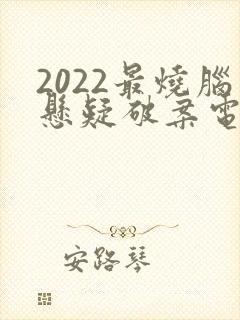 2022最燒腦
懸疑破案電
安路琴